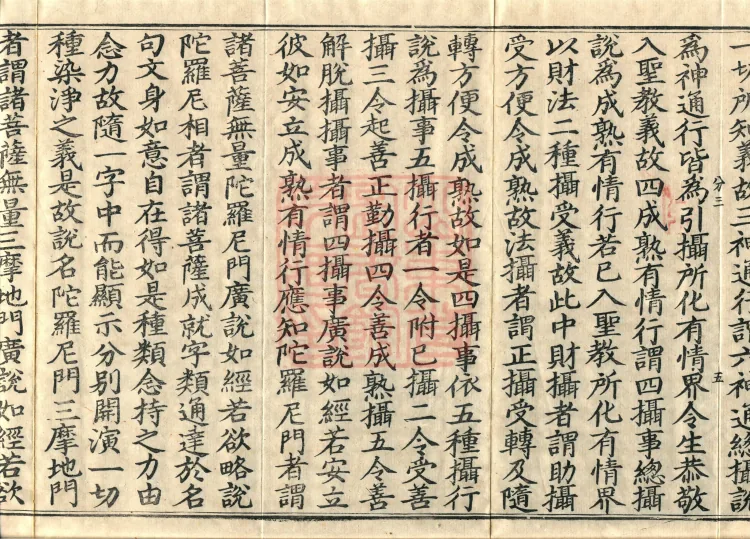 一切所知義故三神通行謂六神通總攝說
分三 五
為神通行皆為引攝所化有情界令生恭敬
入聖教義故四成熟有情行謂四攝事總攝
說為成熟有情行若已入聖教所化有情界
以財法二種攝受義故此中財攝者謂助攝
受方便令成熟故法攝者謂正攝受轉及隨
轉方便令成熟故如是四攝事依五種攝行
說為攝事五攝行者一令附已攝二令受善
攝三令起善正勤攝四令善成熟攝五令善
解脫攝攝事者謂四攝事廣說如經若安立
彼如安立成熟有情行應知陀羅尼門者謂
諸菩薩無量陀羅尼門廣說如經若欲略說
陀羅尼相者謂諸菩薩成就字類通達於名
句文身如意自在得如是種類念持之力由
念力故隨一字中而能顯示分別開演一切
種染淨之義是故說名陀羅尼門三摩地門
者謂諸菩薩無量三摩地門廣說如經若欲